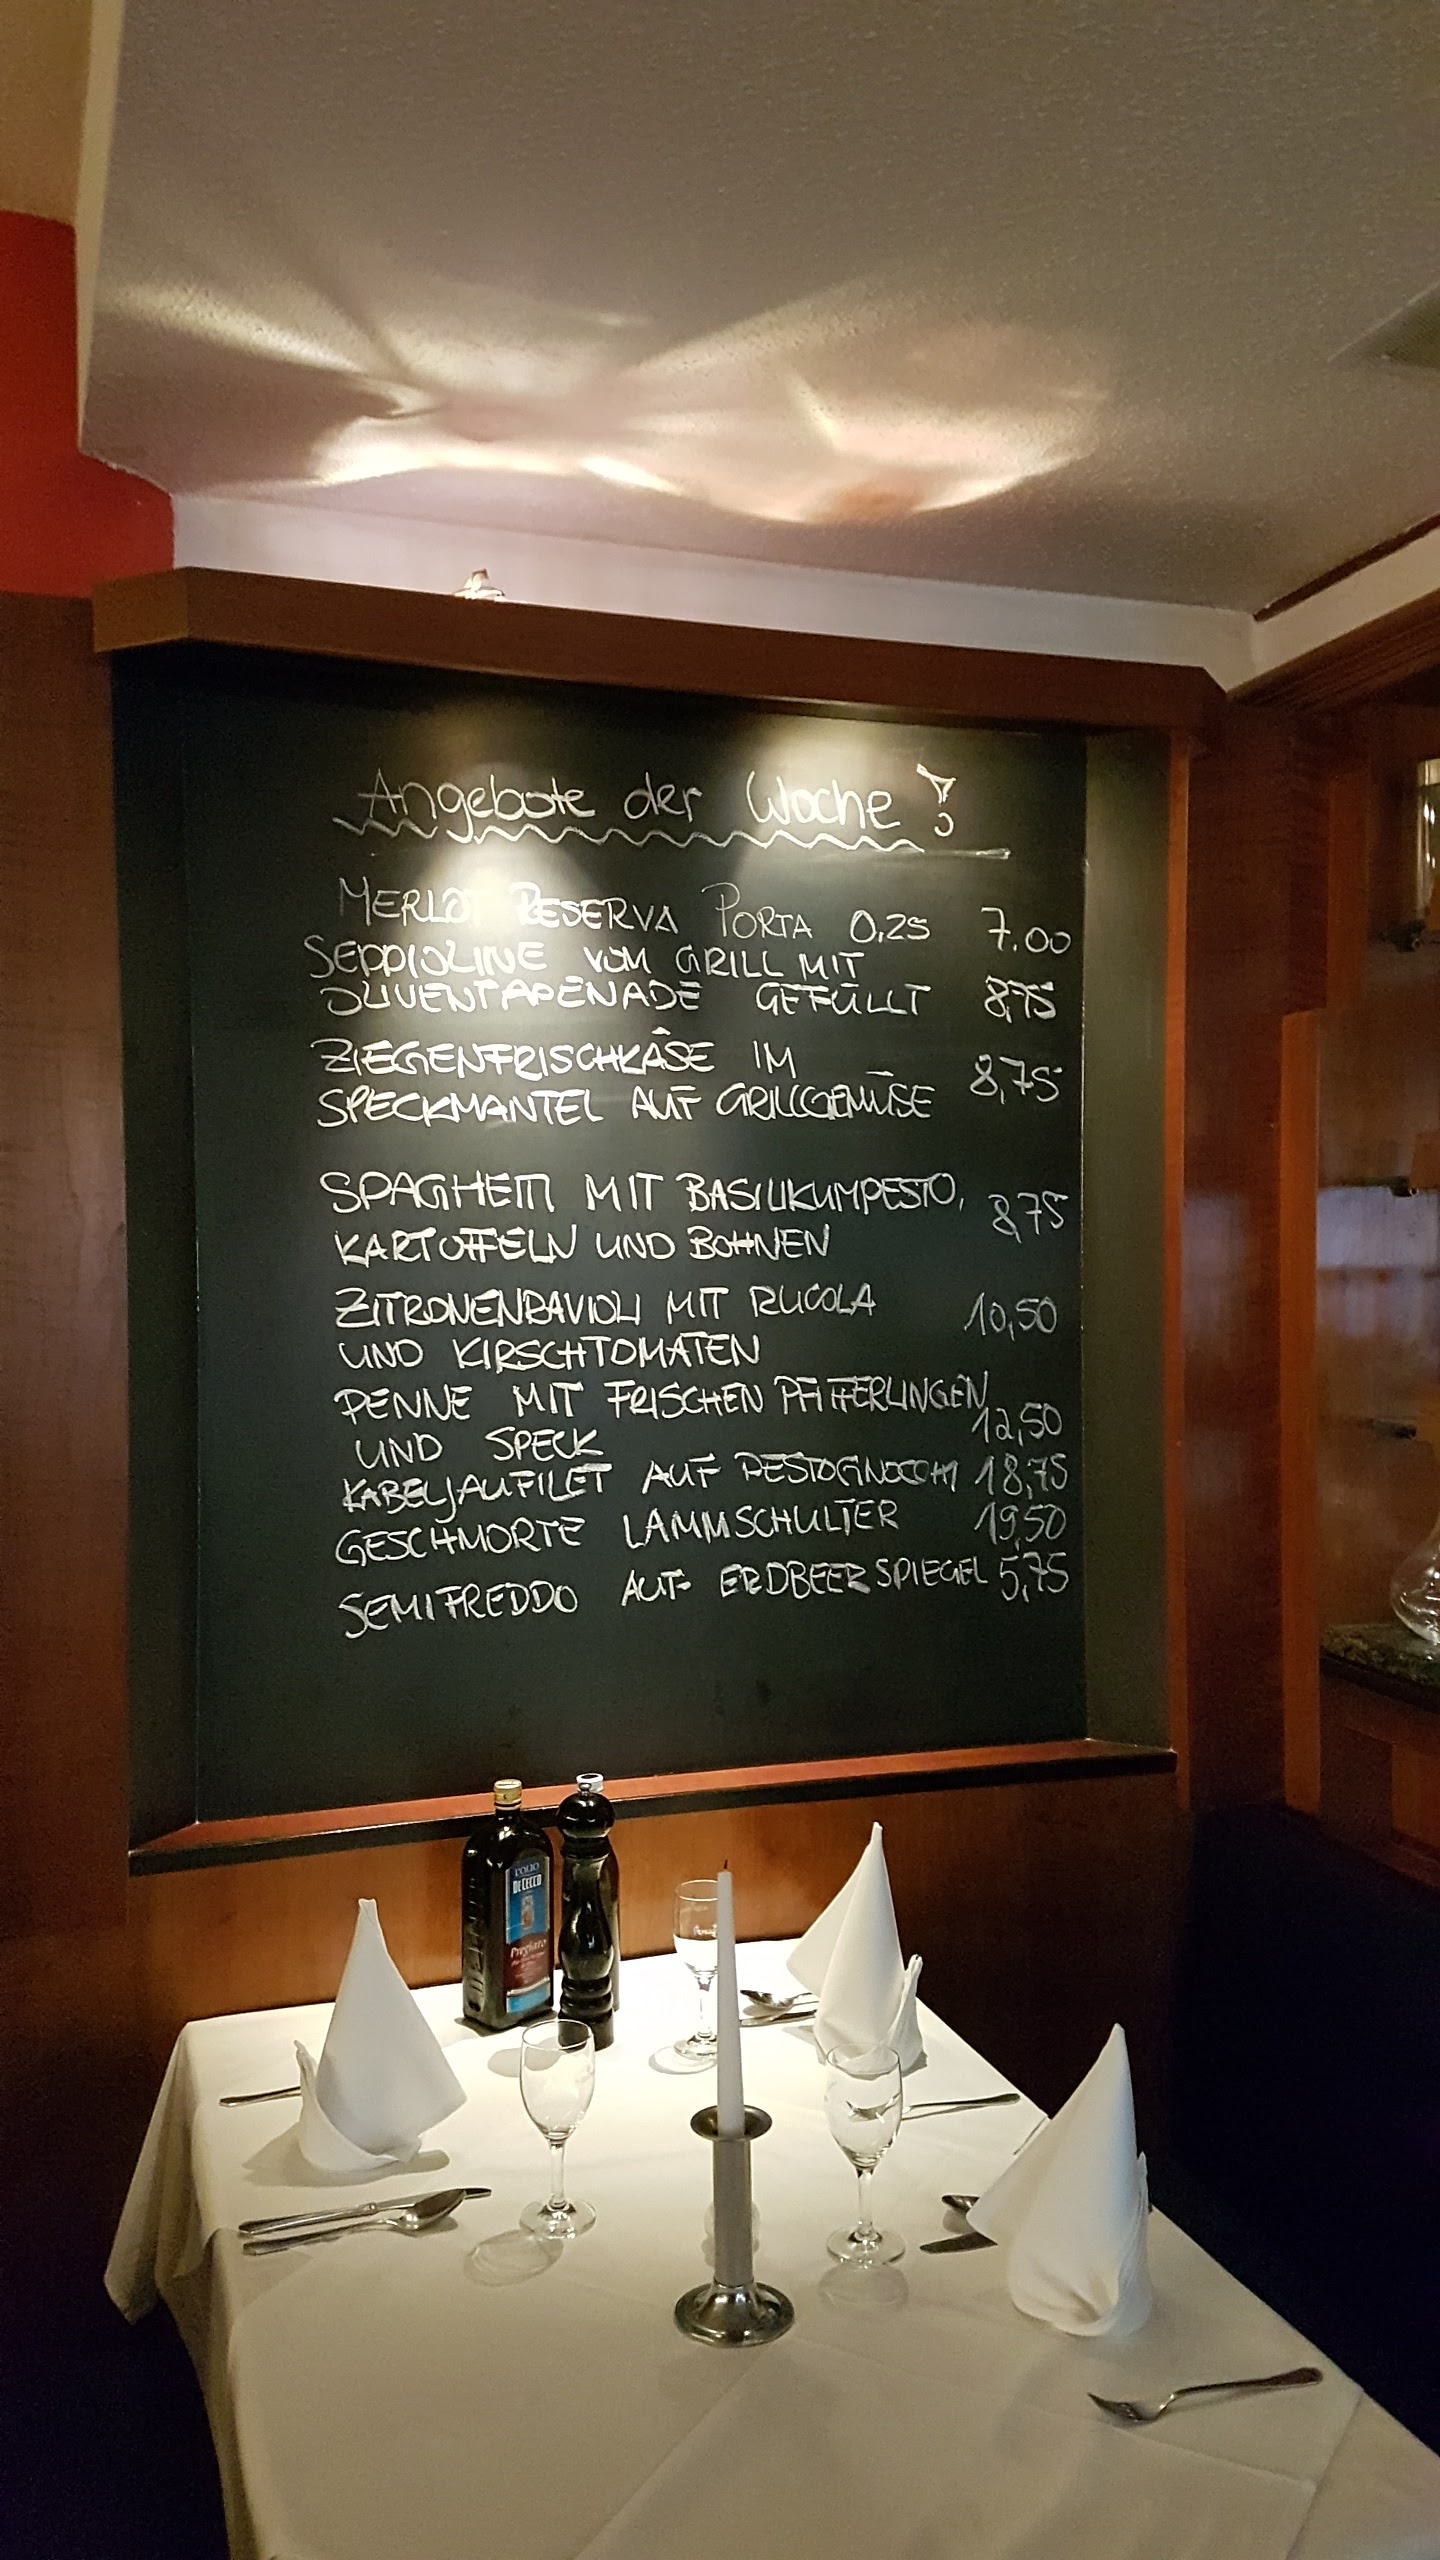 Angebote der Woche!
MERLOT RESERVA PORTA 0,25 7.00
SEPPIOLINE VOM GRILL MIT
OLIVENTAPENADE GEFÜLLT 8,75
ZIEGENFRISCHKÄSE IM
SPECKMANTEL AUF GRILLGEMÜSE 8,75
SPAGHETTI MIT BASILIKUMPESTO,
KARTOFFELN UND BOHNEN 8,75
ZITRONENRAVIOLI MIT RUCOLA 10,50
UND KIRSCHTOMATEN
PENNE MIT FRISCHEN PFIFFERLINGEN
UND SPECK 12,50
KABELJAUFILET AUF PESTOGNOCCHI 18,75
GESCHMORTE LAMMSCHULTER 19,50
SEMIFREDDO AUF ERDBEERSPIEGEL 5,75
L'OLIO
DE CECCO
Pregiato